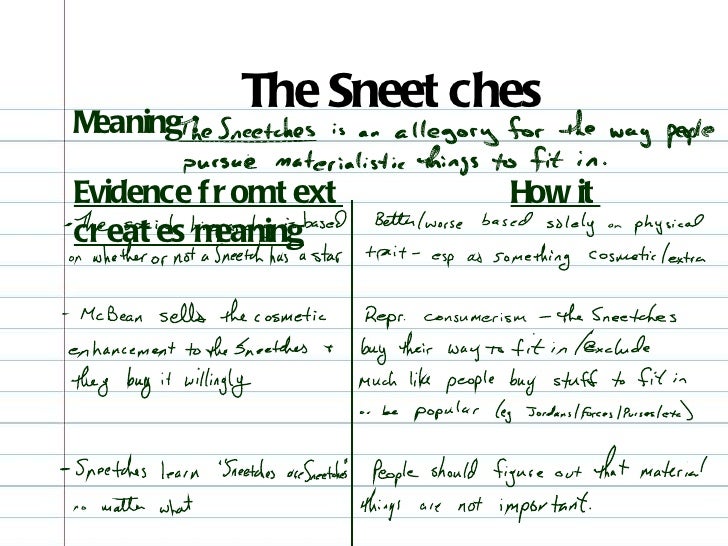 The Sneetches
Meaning The Sneetches is an allegory for the way people
pursue materialistic things to fit in.
Evidence from text How it
creates meaning
- The social hierarchy is based
on whether or not a Sneetch has a star
Better/worse based solely on physical
trait - esp as something cosmetic/extra
- McBean sells the cosmetic
enhancement to the Sneetches +
they buy it willingly
Repr. consumerism - the Sneetches
buy their way to fit in/exclude
much like people buy stuff to fit in
be popular (eg Jordans/Forces/Purses/etc)
- Sneetches learn "Sneetches are Sneetches"
no matter what
People should figure out that material
things are not important.